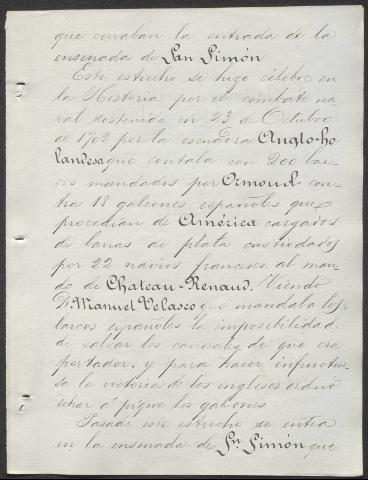 que cerraban la entrada de la
ensenada de San Simón
Este estrecho se hizo célebre en
la Historia por el combate na-
val sostenido en 23 de Octubre
de 1702 por la escuadra Anglo-ho
landesa que contaba con 200 bar-
cos mandados por Ormond con-
tra 18 galeones españoles que
procedían de América cargados
de barras de plata custodiados
por 22 navíos franceses al man-
do de Chateau-Renaud. Viendo
D. Manuel Velasco que mandaba los
barcos españoles la imposibilidad
de salvar los caudales de que era
portador, y para hacer infructuo-
sa la victoria de los ingleses ordenó
echar á pique los galeones.
Pasado este estrecho se entra
en la ensenada de Sn. Simón que